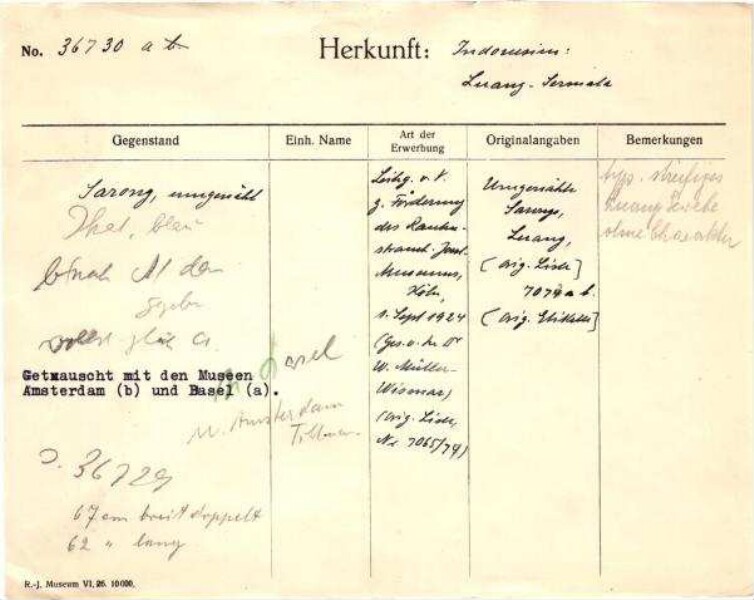 No. 36730 a b
Herkunft: Indonesien:
Luang-Sermata
Gegenstand
Einh. Name
Art der
Erwerbung
Originalangaben
Bemerkungen
Sarong, umgenäht
blau
b) nach
Getxauscht mit den Museen
Amsterdam (b) und Basel (a).
Basel
n. Amsterdam
Tillman
36729
67 cm breit doppelt
62 " lang
Leihg. v. V.
z. Förderung
des Rauten-
strauch-Joest-
Museums,
Köln,
s. Sept 1924
(Ges. v. Dr
W. Müller-
Wismar)
(orig. Liste,
Nr 7065/79)
Umgenähte
Sarongs,
Luang,
[orig. Liste]
7079 a b.
[orig. Etikette]
typ. streifiges
Luang Gewebe
ohne Charakter
R.-J. Museum VI. 26. 10000.